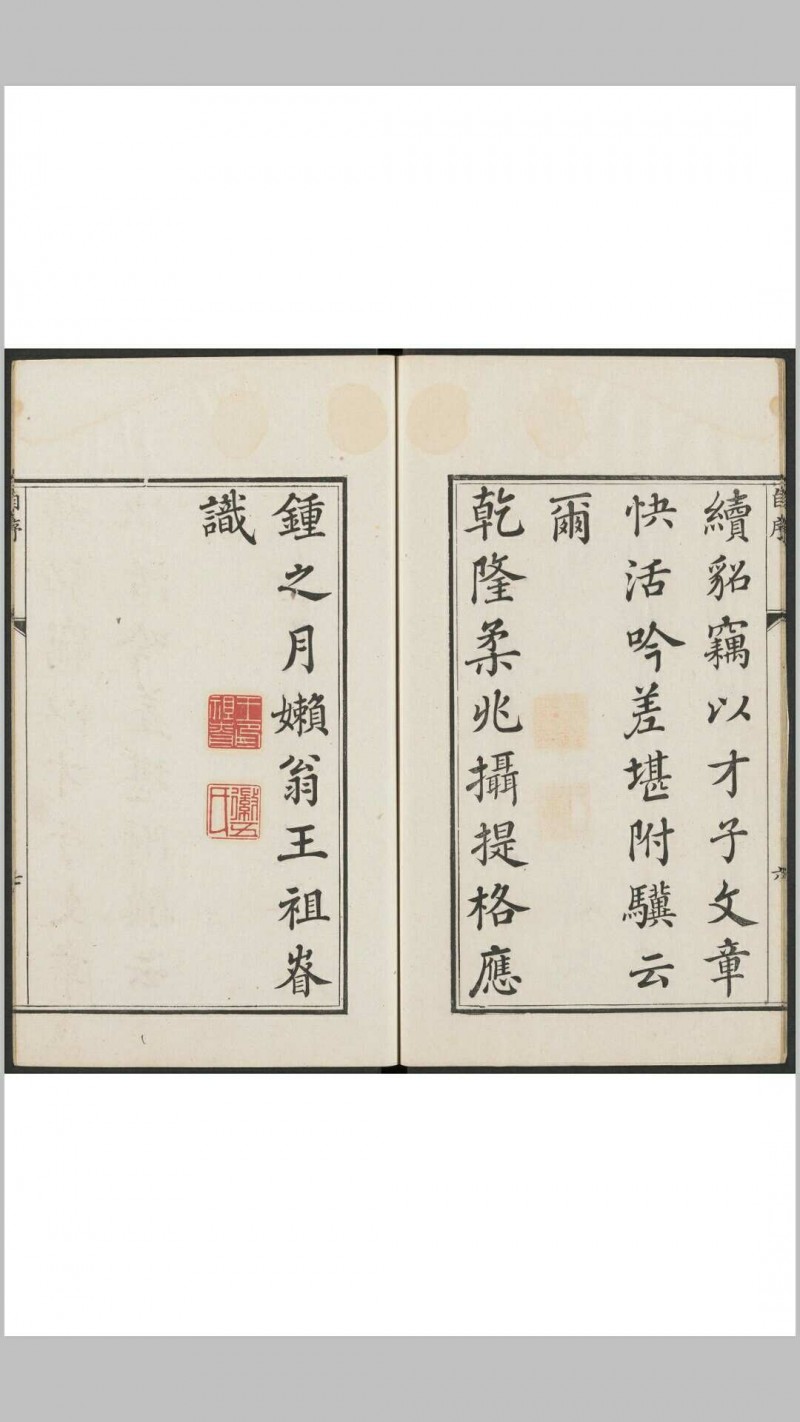 自序
續貂竊以才子文章
快活吟差堪附驥云
爾
乾隆柔兆攝提格應
六
鍾之月嬾翁王祖眘
識
自序
七